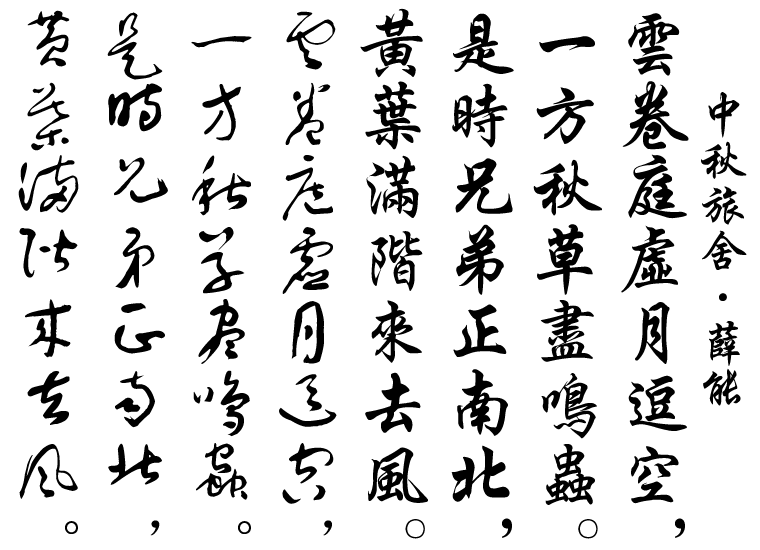 中秋旅舍・薛能
雲卷庭虛月逗空，
一方秋草盡鳴蟲。
是時兄弟正南北，
黃葉滿階來去風。
雲卷庭虛月逗空，
一方秋草盡鳴蟲。
是時兄弟正南北，
黃葉滿階來去風。